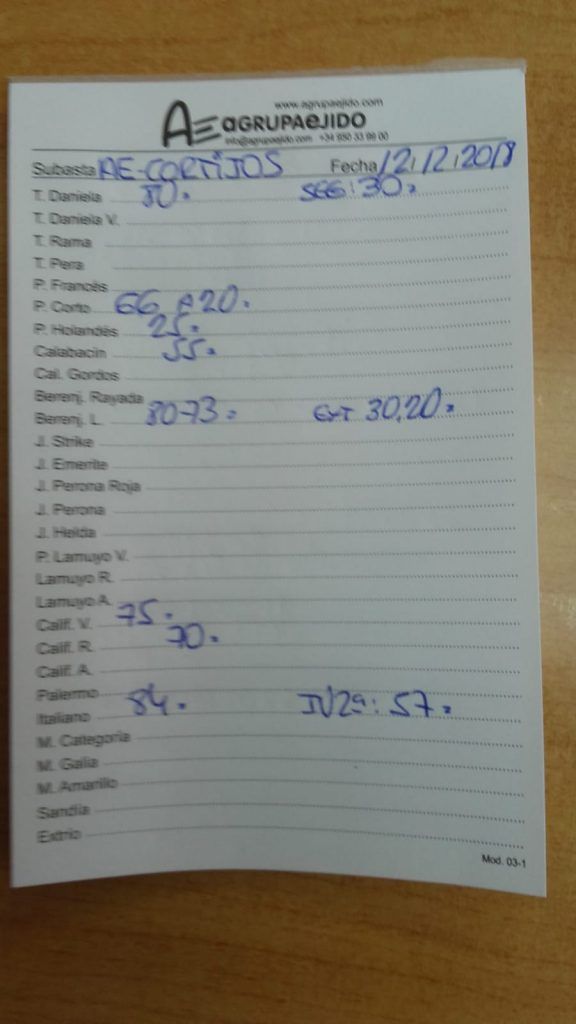 www.agrupaejido.com
AE AGRUPAEJIDO
info@agrupaejido.com +34 950 33 99 00
Subasta AE-CORTIJOS Fecha 12/12/2018
T. Daniela 50. SEG: 30.
T. Daniela V.
T. Rama
T. Pera
P. Francés
P. Corto 66 A 20.
P. Holandés 25.
Calabacin 55.
Cal. Gordos
Berenj. Rayada
Berenj. L. 80-73. 30,20.
J. Strike
J. Emerite
J. Perona Roja
J. Perona
J. Helda
P. Lamuyo V.
Lamuyo R.
Lamuyo A.
Calif. V. 75.
Calif. R. 70.
Calif. A.
Palermo
Italiano 84. IV2ª: 57.
M. Categoría
M. Galia
M. Amarillo
Sandía
Extrio
Mod. 03-1